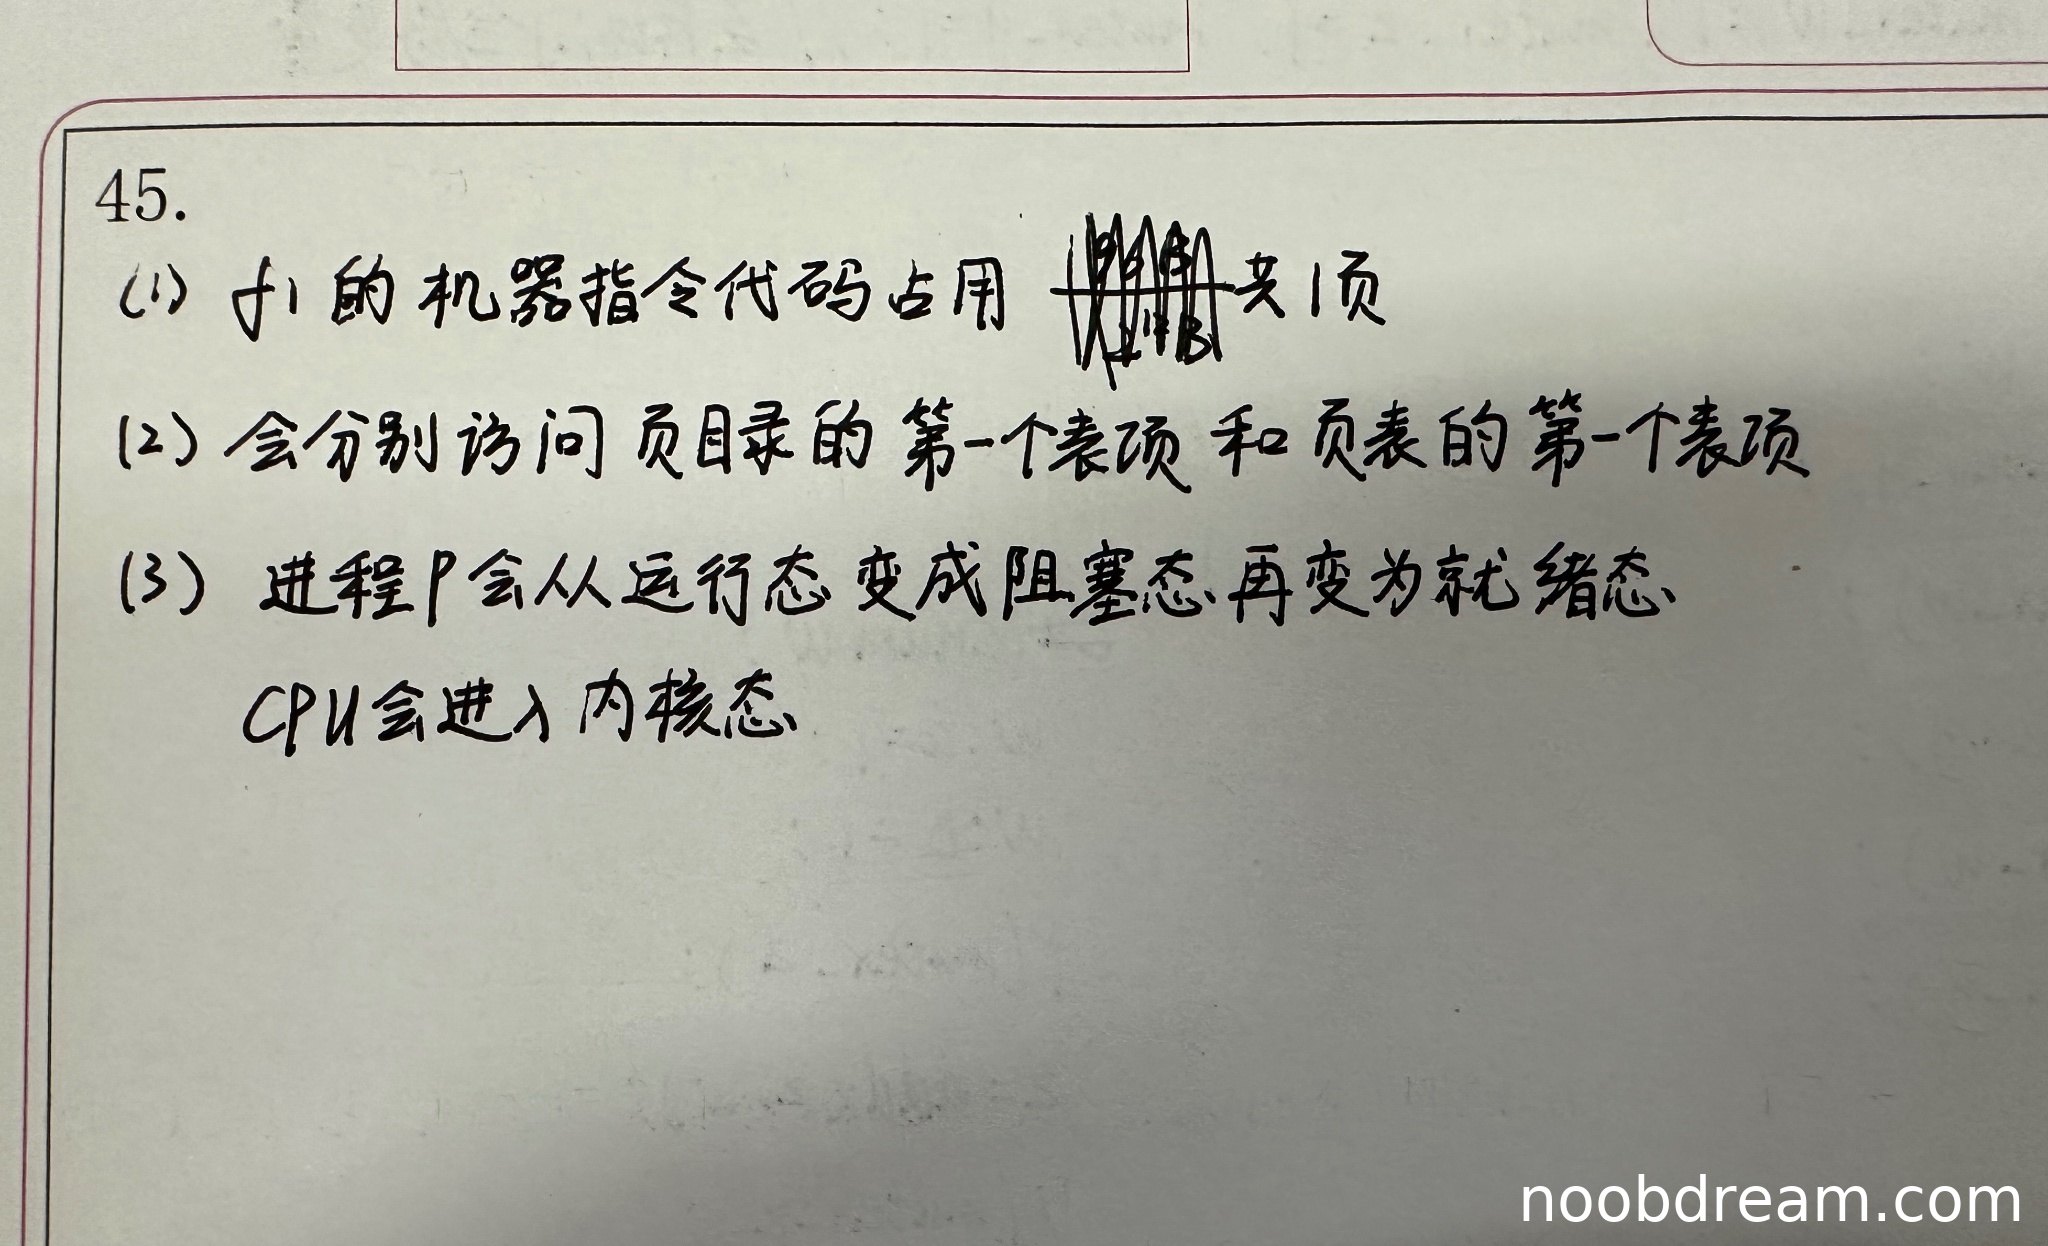 45.
(1) f1的机器指令代码占用 共1页
(2) 会分别访问页目录的第一个表项和页表的第一个表项
(3) 进程P会从运行态变成阻塞态再变为就绪态
CPU会进入内核态
noobdream.com